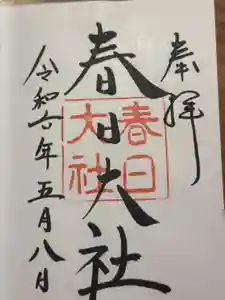 奉拝
春日大社
春日大社
令和六年五月八日